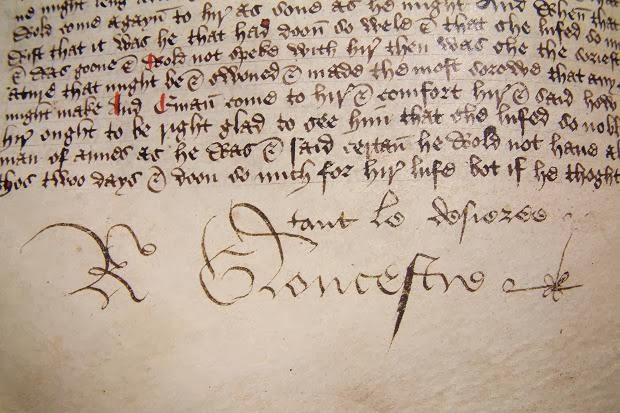 me might
Wold come agayn to hir as sone as he might And when that
Wist that it was he that had doon so well & that she lufed so
& was goone & wold not speke with hir then was she the soriest
that might be & swouned & made the most sorowe that any
might make And Eman come to hir & comfort hir & said how
hir ought to be right glad to see him that she lufed so nobl
man of armes as he was & said certan he wold not have
thos twoo days & doon so much for hir lufe bot if he thoght
tant le desieree
R Gloucestre